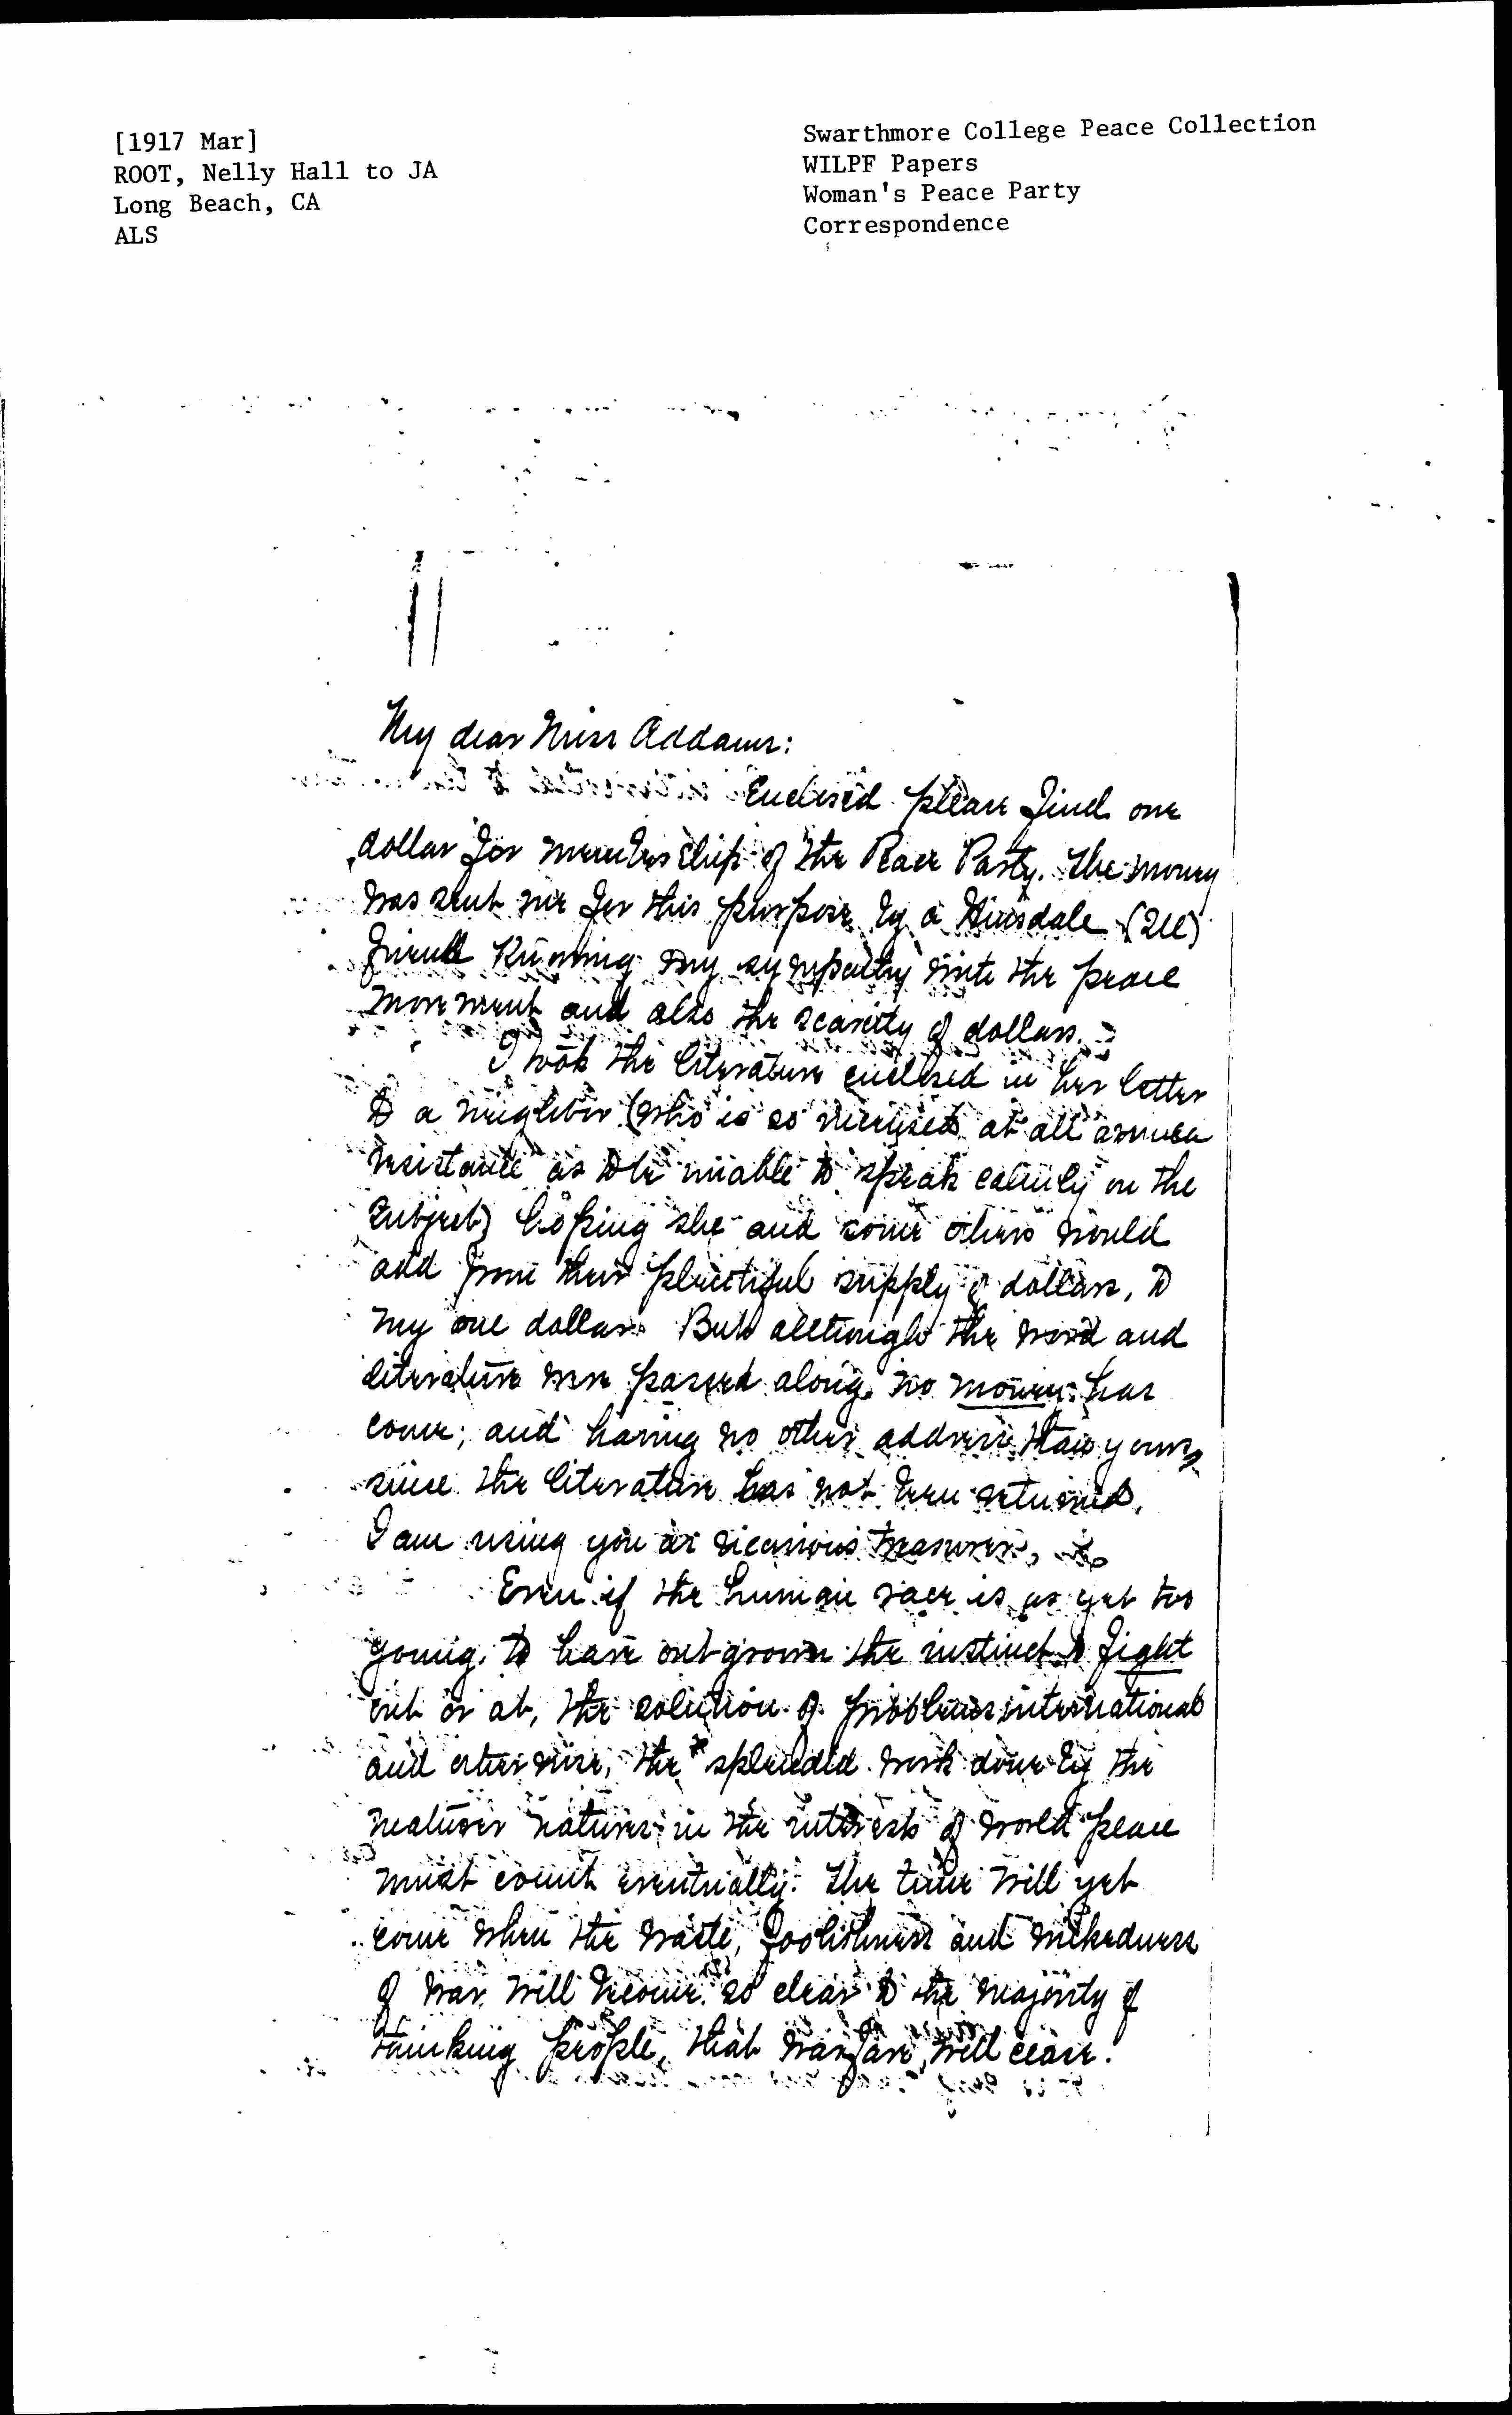 [1917 Mar]
ROOT, Nelly Hall to JA
Long Beach, CA
ALS
Swarthmore College Peace Collection
WILPF Papers
Woman's Peace Party
Correspondence
My dear Miss Addams:
Enclosed please find one
dollar for membership of the Peace Party. The money
was sent me for this purpose by a Hinsdale (Ill)
friend knowing my sympathy with the peace
movement and also the scarcity of dollars.
I took the literature enclosed in her letter
to a neighbor (who is so incensed at all armed
resistance as to be unable to speak calmly on the
subject) hoping she and some others would
add from their plentiful supply of dollars, to
my one dollar. But although the word and
literature were passed along, no money has
come; and having no other address than yours,
since the literature has not been returned,
I am using you as vicarious treasurer,
Even if the human race is as yet too
young to have outgrown the instinct to fight
out or at, the solution of problems international
and otherwise, the splendid work done by the
maturer natures in the interests of world peace
must count eventually. The time will yet
come when the waste, foolishness and wickedness
of war will become so clear to the majority of
thinking people, that warfare will cease.